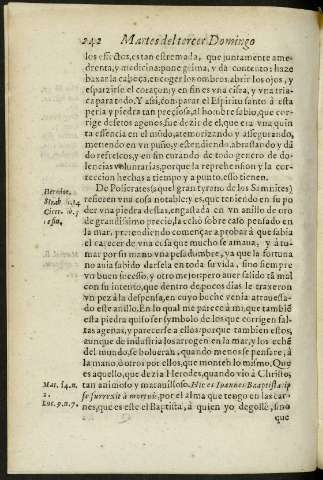 242 Martes del tercer Domingo
los effectos, estan estremada, que juntamente ame-
drenta, y medicina: pone grima, y dà contento: haze
baxar la cabeça, encoger los ombros, abrir los ojos, y
esparzirse el coraçon: y en fin es vna cifra, y vna tria-
ca para todo. Y assi, con parar el Espiritu santo à esta
perla y piedra tan preciosa, al hombre sabio, que cor-
rige defetos agenos, fue dezir de el, que era vna quin
ta essencia en el mũdo, atemorizando y assegurando,
metiendo en vn puño, y estendiendo, abrasando y dã
do refrescos, y en fin curando de todo genero de do-
lencias voluntarias, porque la reprehension y la cor-
reccion hechas a tiempo y a punto, esso tienen.
De Policrates (aquel gran tyrano de los Samnites)
Herodot.
Strab. li. 14
refieren vna cosa notable: y es, que teniendo en su po
der vna piedra destas, engastada en vn anillo de oro
de grandissimo precio, la echò sobre caso pensado en
la mar, pretendiendo començar a probar à que sabia
el carecer de vna cosa que mucho se amaua, y à to-
mar por su mano vna pesadumbre, ya que la fortuna
no auia sabido darsela en toda su vida, sino siempre
vn buen sucesso, y otro mejor: pero auer salido tã mal
con su intento, que dentro de pocos dias le traxeron
vn pez à la despensa, en cuyo boche venia atrauessa-
do este anillo. En lo qual me parece à mi, que tambiẽ
esta piedra quiso ser symbolo de los que corrigen fal-
tas agenas, y parecerse a ellos: porque tambien estos,
aunque de industria los arrogen en la mar, y los echẽ
del mundo, se bolueràn, quando menos se pensare, à
la mano, ò otros por ellos, que monten lo mismo. Que
es aquello, que dezia Herodes, quando vio à Christo,
Mat. 14. n.
2.
Luc. 9. n. 7.
tan animoso y marauilloso. Hic est Ioannes Baaptista: ip
se surrexit à mortuis, por el alma que tengo en las car-
nes, que es este el Baptista, à quien yo degollè, sino
que